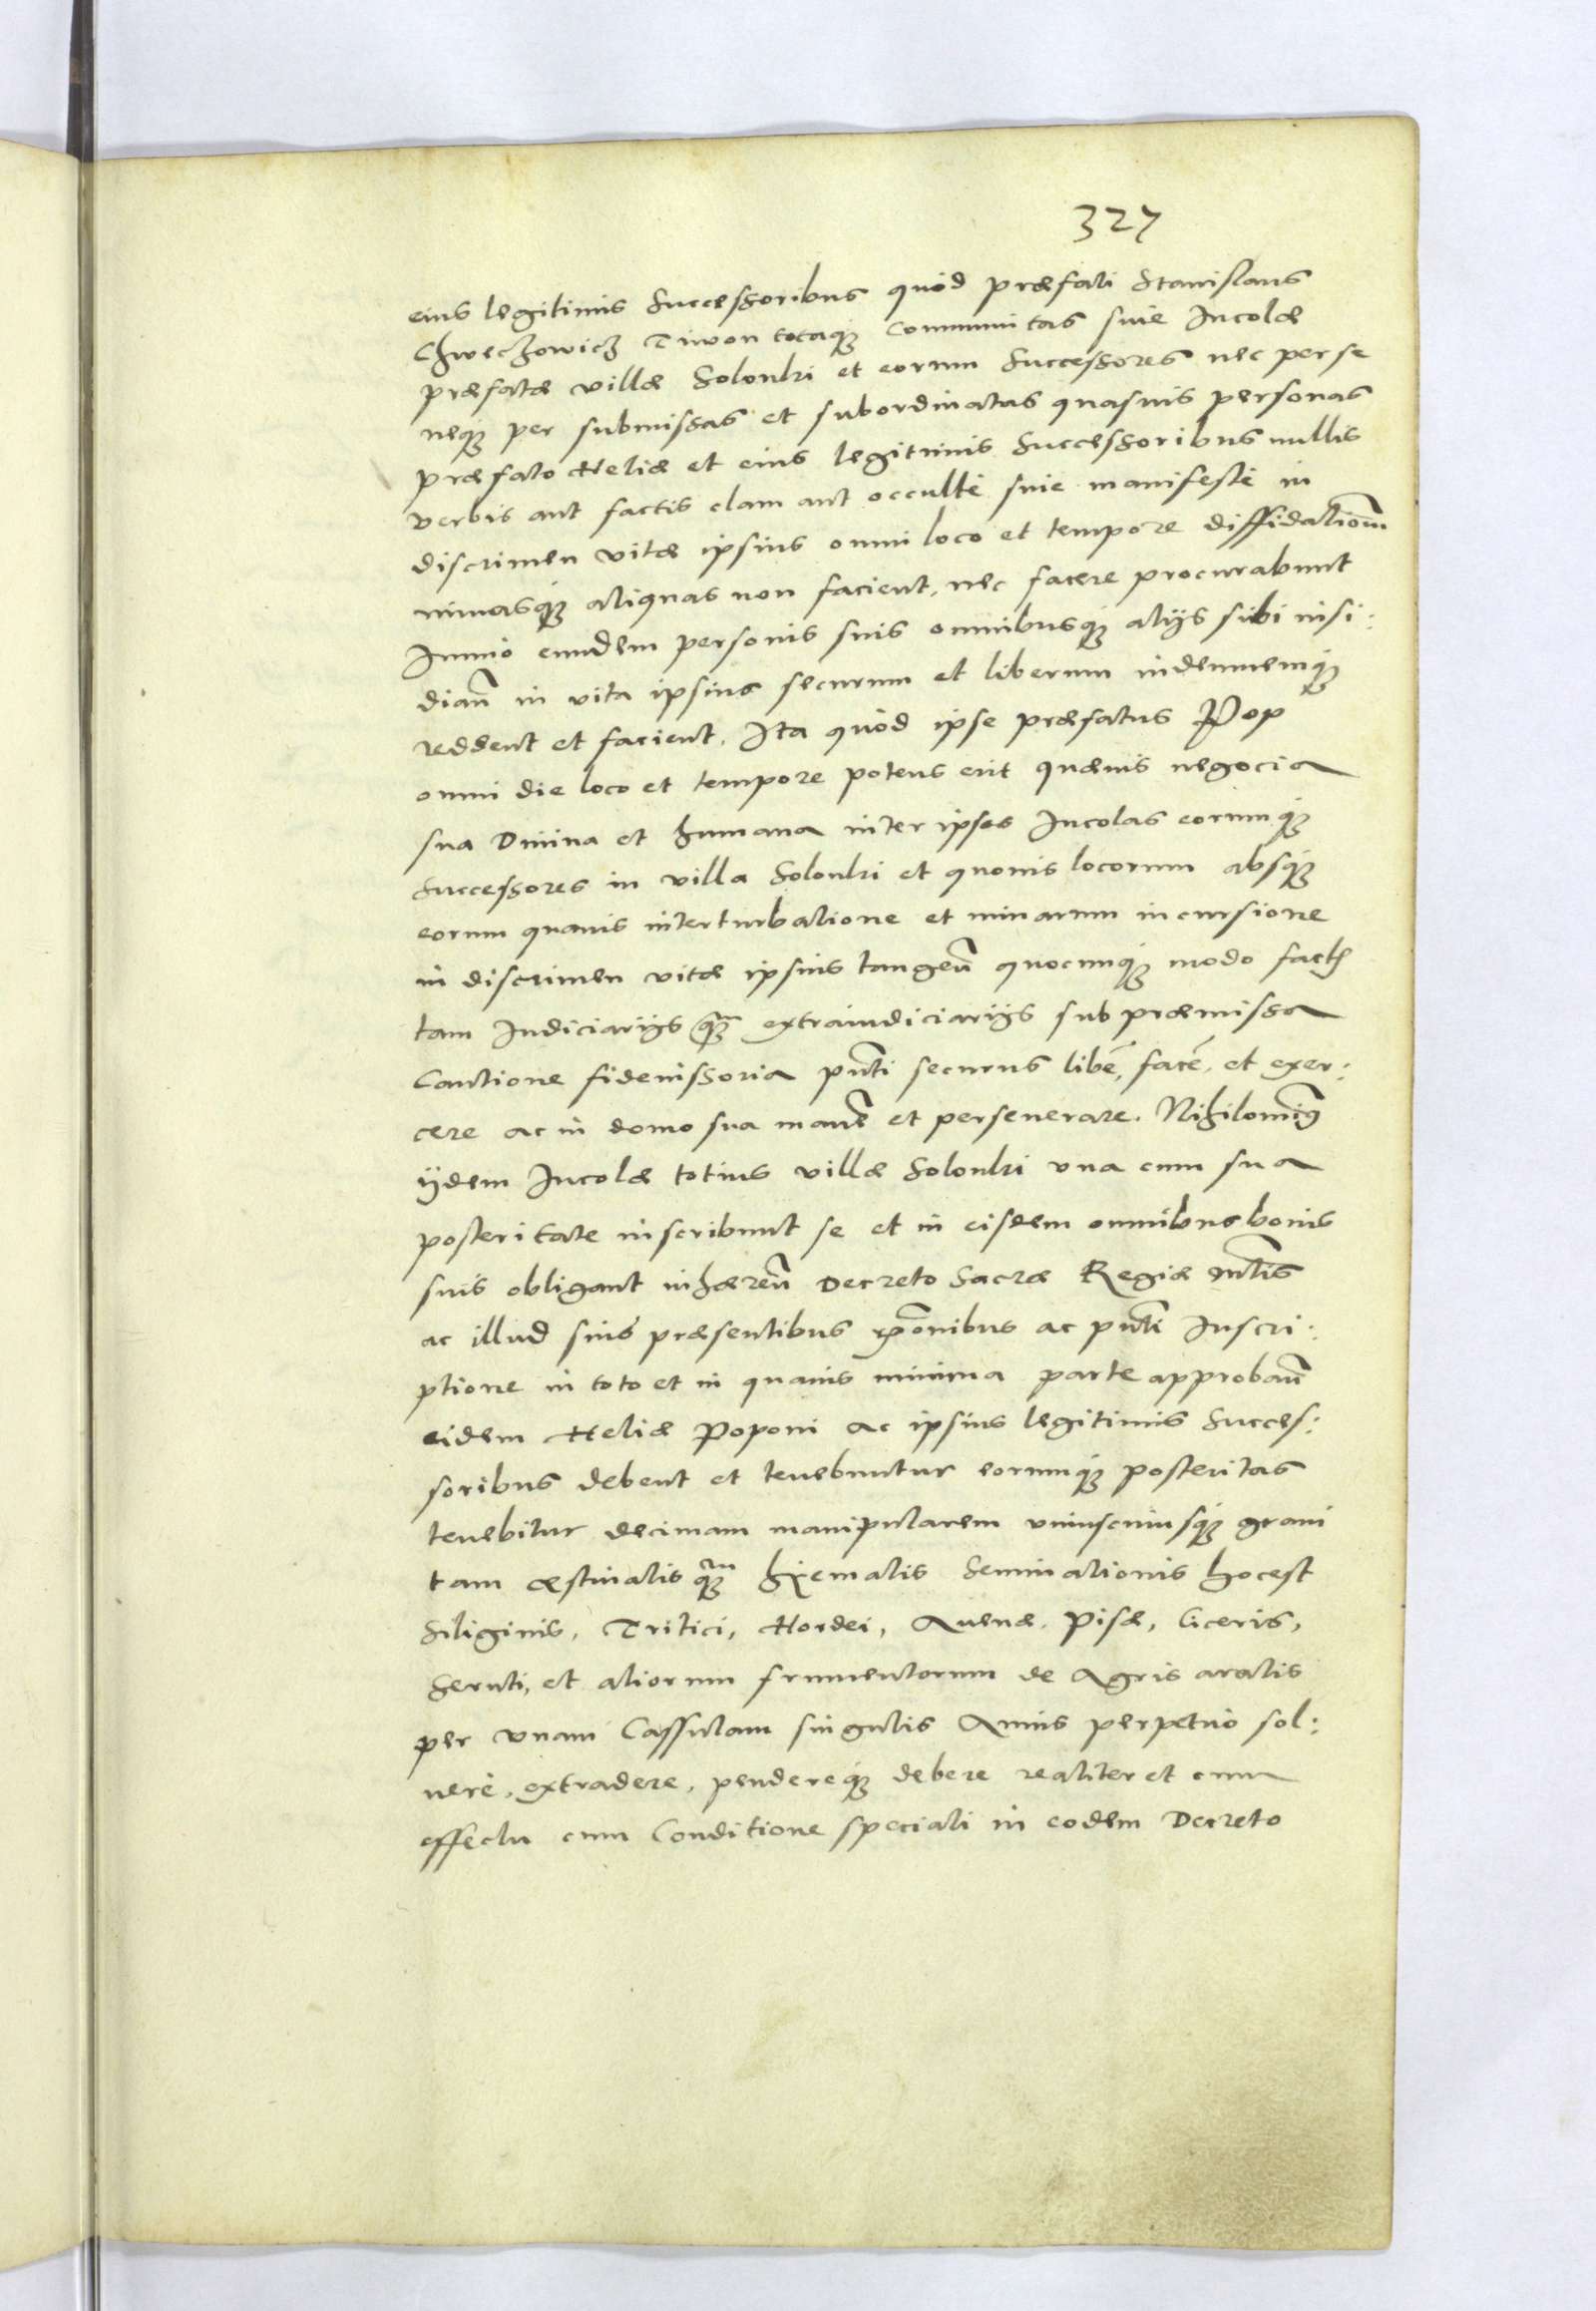 327
eius legitimis Successoribus quòd præfati Stanislaus
Chweczowicz Tiwon totaq₃ Communitas siue Incolæ
præfatæ villæ Solonki et eorum Successores nec per se
neq₃ per submissas et subordinatas quasuis personas
præfato Heliæ et eius legitimis Successoribus nullis
verbis aut factis clam aut occultè siue manifestè in
discrimen vitæ ipsius omni loco et tempore diffidationem
minasq₃ aliquas non facient, nec facere procurabunt
Immò eundem personis suis omnibusq₃ alijs sibi insi:
dian̄ in vita ipsius securum et liberum indemnemq₃
reddent et facient. Ita quòd ipse præfatus Pop
omni die loco et tempore potens erit quæuis negocia
sua Diuina et humana inter ipsos Incolas eorumq₃
Successores in villa Solonki et quouis locorum absq₃
eorum quauis interturbatione et minarum incursione
in discrimen vitæ ipsius tangen̄ quocunq₃ modo fact
tam Iudiciarijs q̃ extraiudiciarijs sub præmissa
Cautione fideiussoria pn̄ti securus libē, facē, et exer:
cere ac in domo sua manē et perseuerare. Nihilominꝰ
ijdem Incolæ totius villæ Solonki vna cum sua
posteritate inscribunt se et in eisdem omnibus bonis
suis obligant inhæren̄ Decreto Sacræ Regiæ Mt̄is
ac illud suis præsentibus rōnibus ac pn̄ti Inscri:
ptione in toto et in quauis minima parte approban̄
eidem Heliæ Poponi ac ipsius legitimis Succes:
soribus debent et tenebuntur eorumq₃ posteritas
tenebitur decimam manipularem vniuscuiusq₃ grani
tam æstiualis q̃ hyemalis Seminationis hoc est
Siliginis, Tritici, Hordei, Auenæ, Pisæ, Ciceris,
Seruti, et aliorum frumentorum de Agris aratis
per vnam Cassulam singulis Annis perpetuò sol:
uere, extradere, pendereq₃ debere realiter et cum
effectu cum Conditione speciali in eodem Decreto